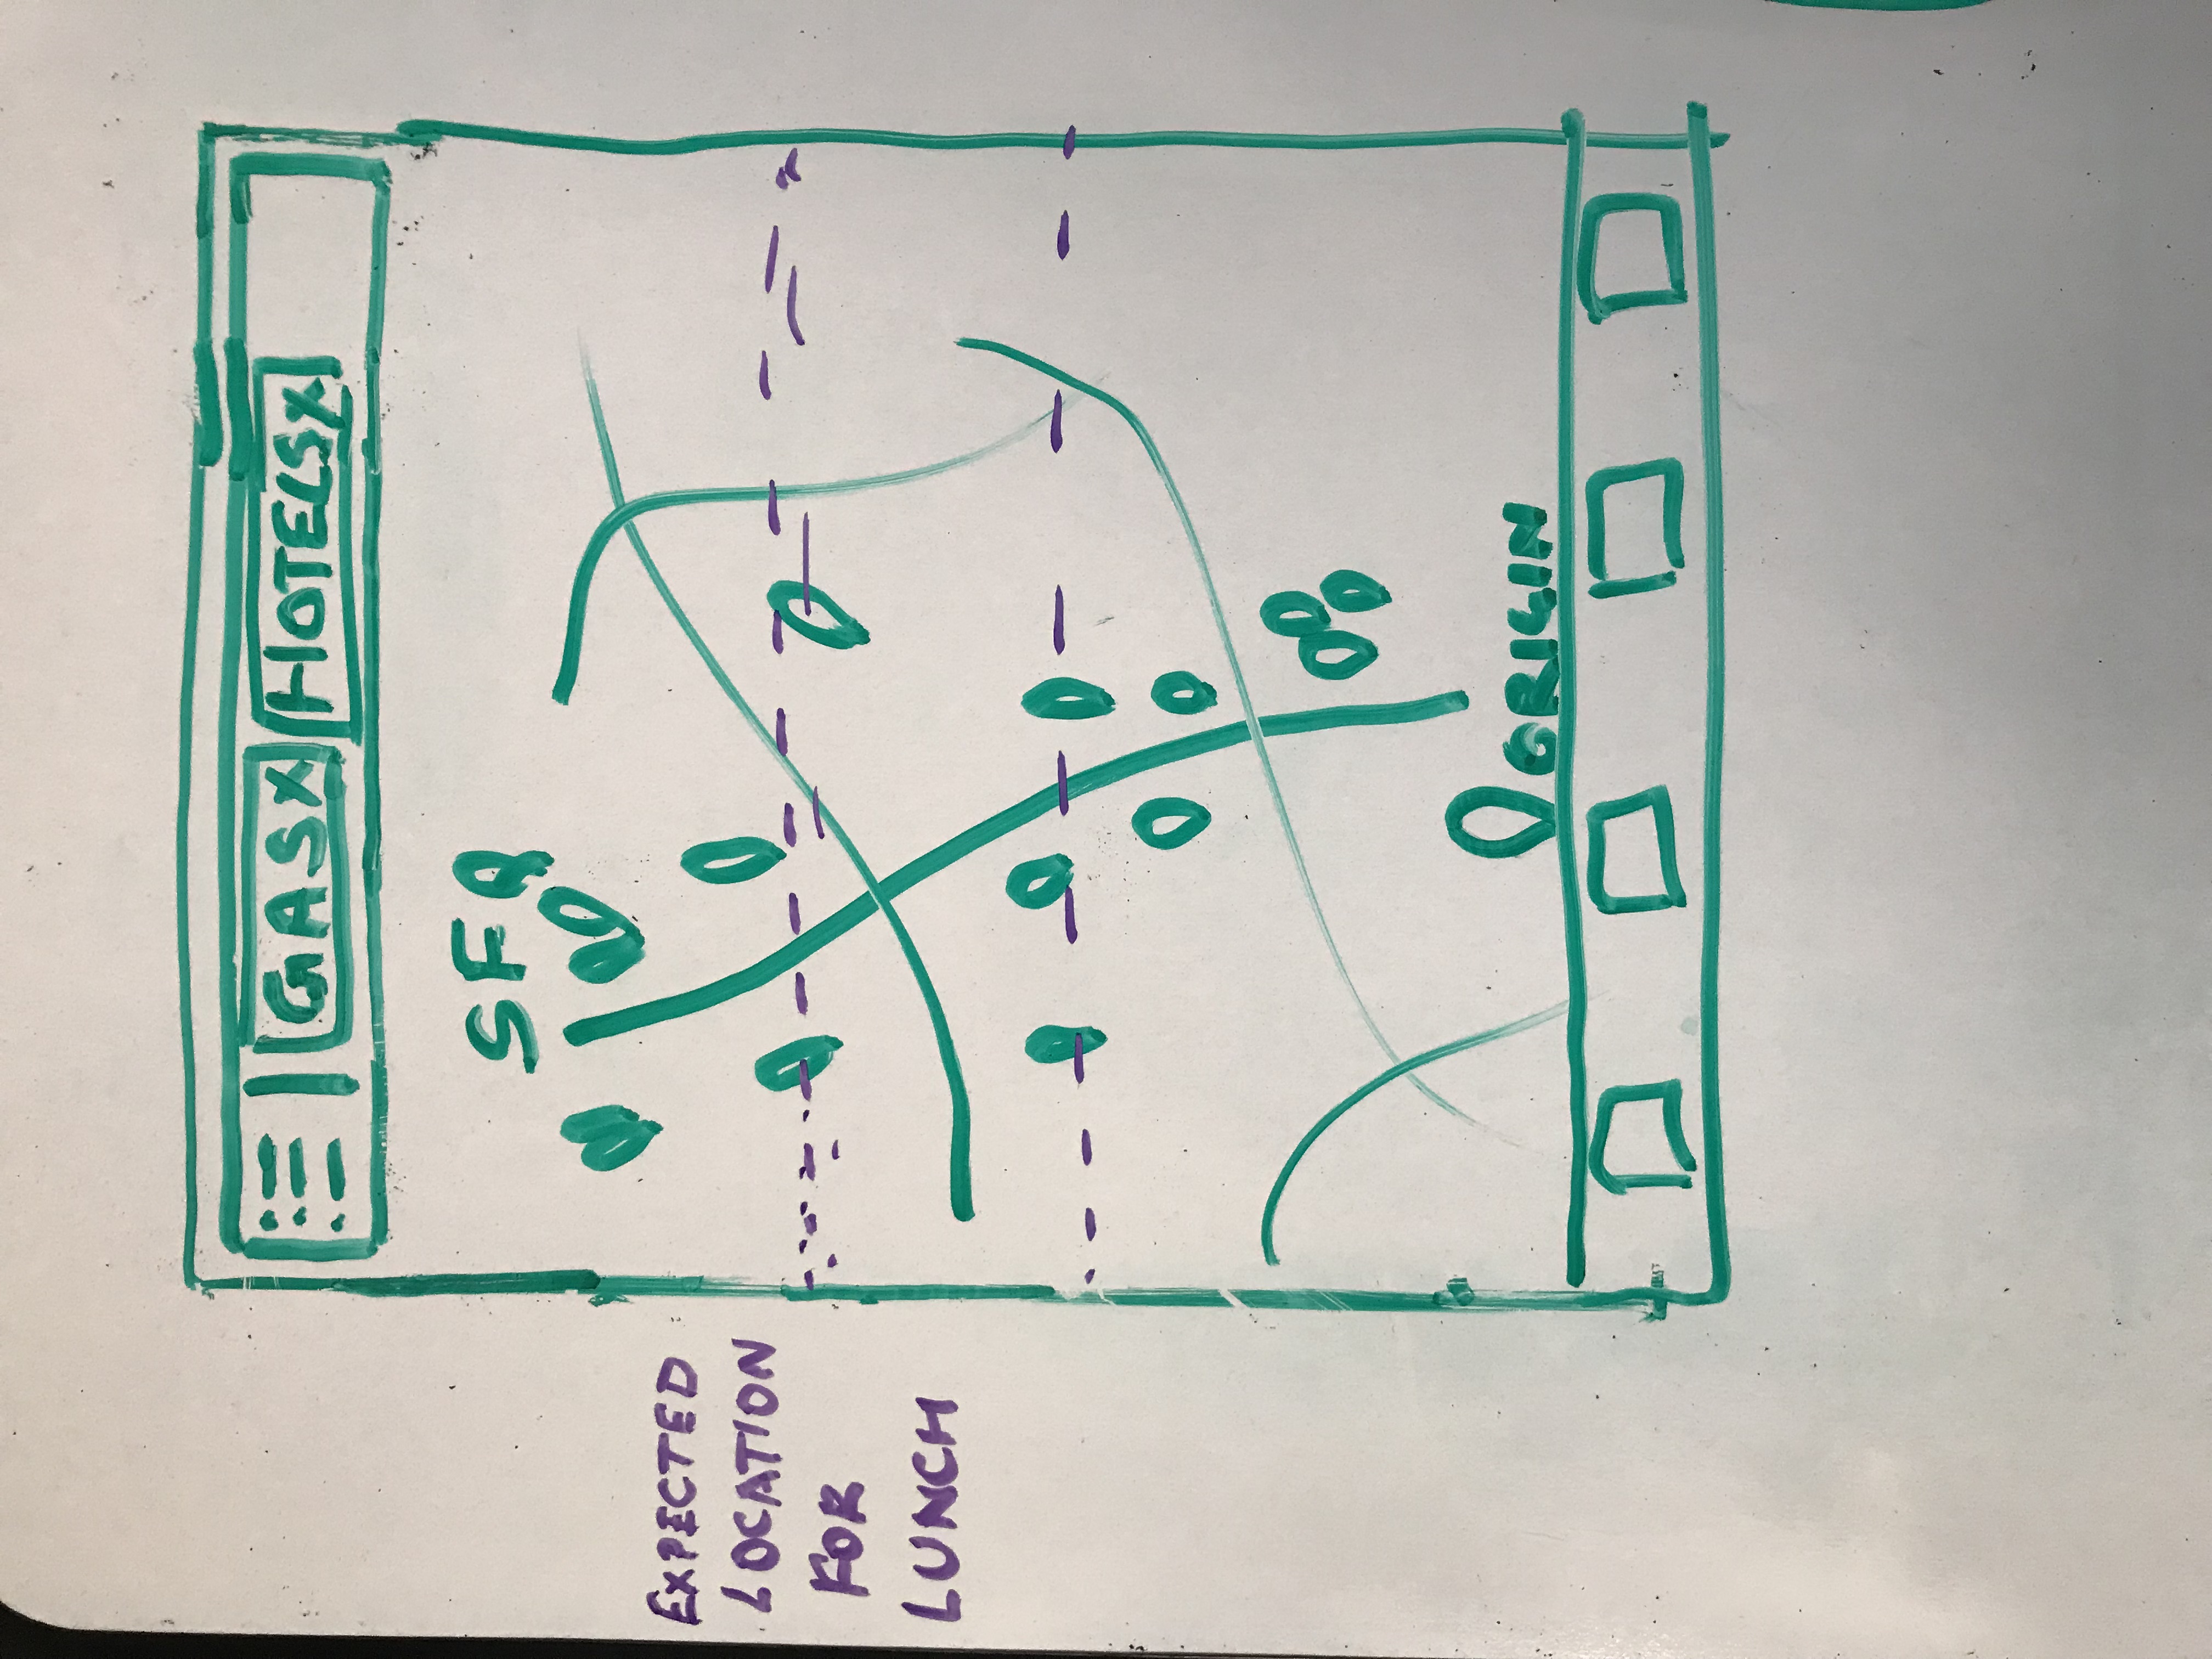 GAS X HOTELS X
SF
EXPECTED
LOCATION
FOR
LUNCH
ORIGIN